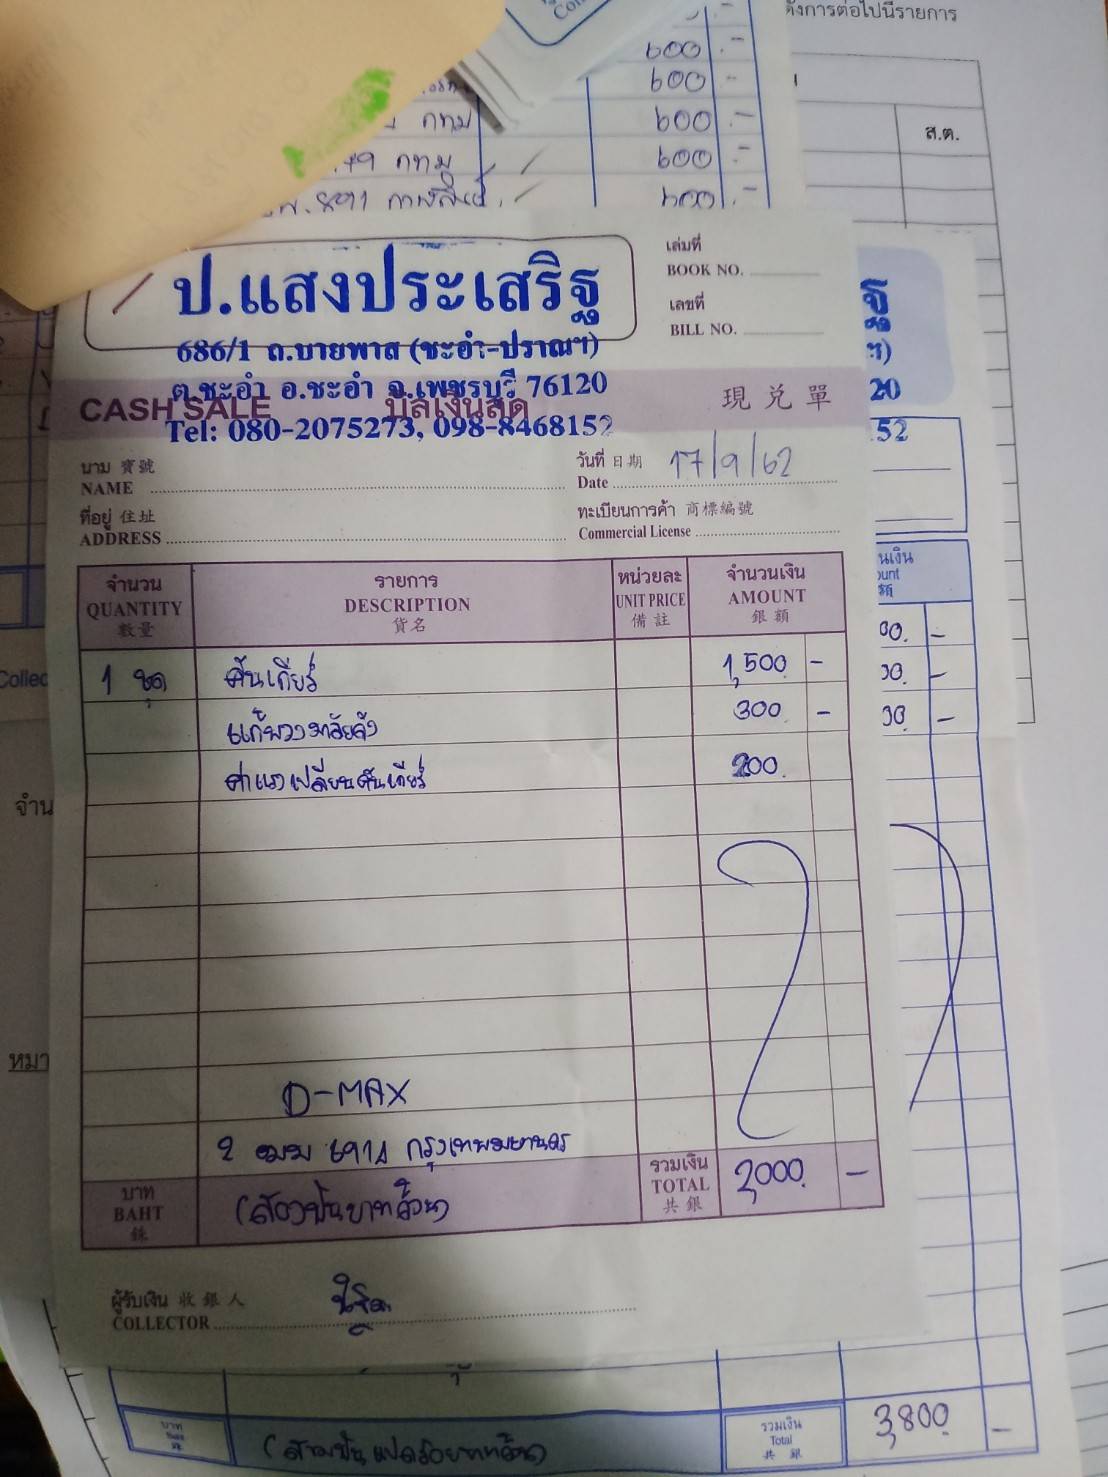 ดังการต่อไปนี้รายการ
600 .-
600 -
กทม 600 .-
กทม 600 .-
600 .-
ส.ต.
ป.แสงประเสริฐ
686/1 ถ.บายพาส (ชะอำ-ปราณฯ)
ต.ชะอำ อ.ชะอำ จ.เพชรบุรี 76120
Tel: 080-2075273, 098-8468152
เล่มที่
BOOK NO.
เลขที่
BILL NO.
CASH SALE บิลเงินสด 現兌單
นาม 寶號
NAME
วันที่ 日期 17/9/62
Date
ที่อยู่ 住址
ADDRESS
ทะเบียนการค้า 商標編號
Commercial License
จำนวน รายการ หน่วยละ จำนวนเงิน
QUANTITY DESCRIPTION UNIT PRICE AMOUNT
數量 貨名 備註 銀額
1 ชุด คันเกียร์ 1,500 -
แก้พวงมาลัยดัง 300 -
ค่าแรงเปลี่ยนคันเกียร์ 200.
D-MAX
2 ฒฆ 6914 กรุงเทพมหานคร
บาท
BAHT
銖
(สองพันบาทถ้วน)
รวมเงิน
TOTAL
共銀
2,000. -
ผู้รับเงิน 收銀人
COLLECTOR
ฐ
ฯ)
20
52
นเงิน
ount
00. -
00. -
00 -
Collec
จำน
หมา
บาท
Baht
銖
(สามพันแปดร้อยบาทถ้วน)
รวมเงิน
Total
共銀
3,800. -